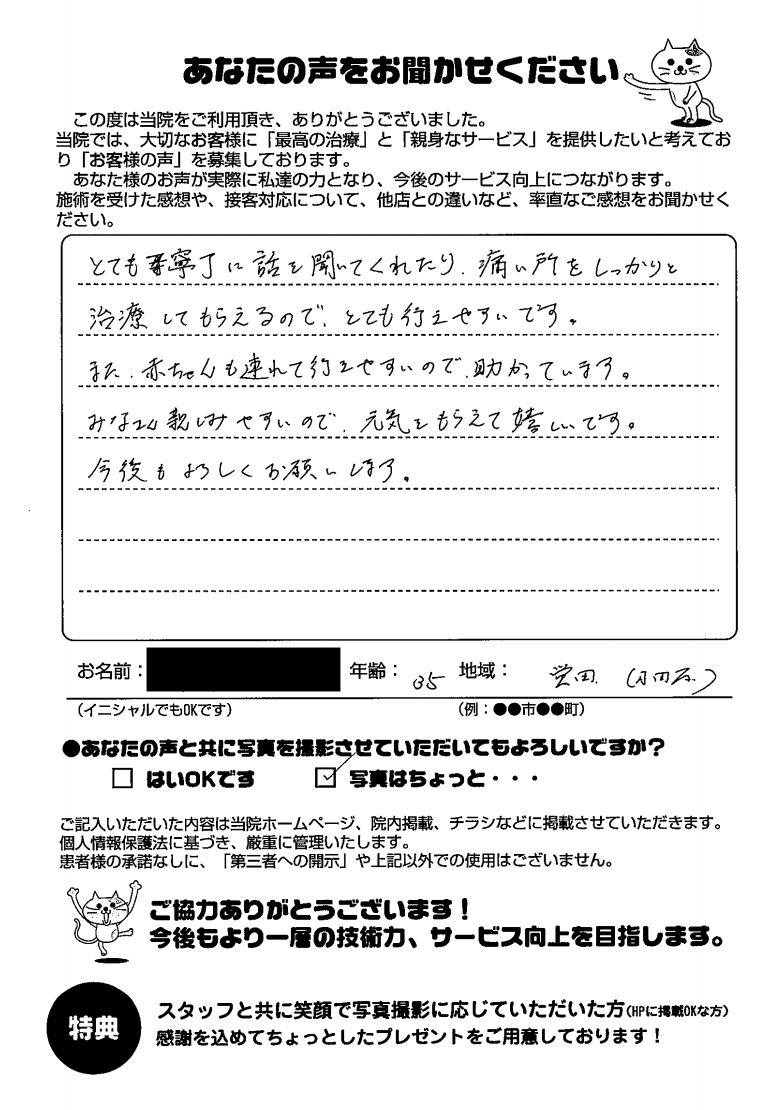 あなたの声をお聞かせください
この度は当院をご利用頂き、ありがとうございました。
当院では、大切なお客様に「最高の治療」と「親身なサービス」を提供したいと考えてお
り「お客様の声」を募集しております。
あなた様のお声が実際に私達の力となり、今後のサービス向上につながります。
施術を受けた感想や、接客対応について、他店との違いなど、率直なご感想をお聞かせく
ださい。
とても丁寧に話を聞いてくれたり、痛い所をしっかりと
治療してもらえるので、とても行きやすいです。
また、赤ちゃんも連れて行きやすいので、助かっています。
みなさん親しみやすいので、元気をもらえて嬉しいです。
今後もよろしくお願いします。
お名前： 年齢： 35 地域：
（イニシャルでもOKです） （例：●●市●●町）
●あなたの声と共に写真を撮影させていただいてもよろしいですか？
□ はいOKです ☑ 写真はちょっと・・・
ご記入いただいた内容は当院ホームページ、院内掲載、チラシなどに掲載させていただきます。
個人情報保護法に基づき、厳重に管理いたします。
患者様の承諾なしに、「第三者への開示」や上記以外での使用はございません。
ご協力ありがとうございます！
今後もより一層の技術力、サービス向上を目指します。
特典
スタッフと共に笑顔で写真撮影に応じていただいた方(HPに掲載OKな方)
感謝を込めてちょっとしたプレゼントをご用意しております！